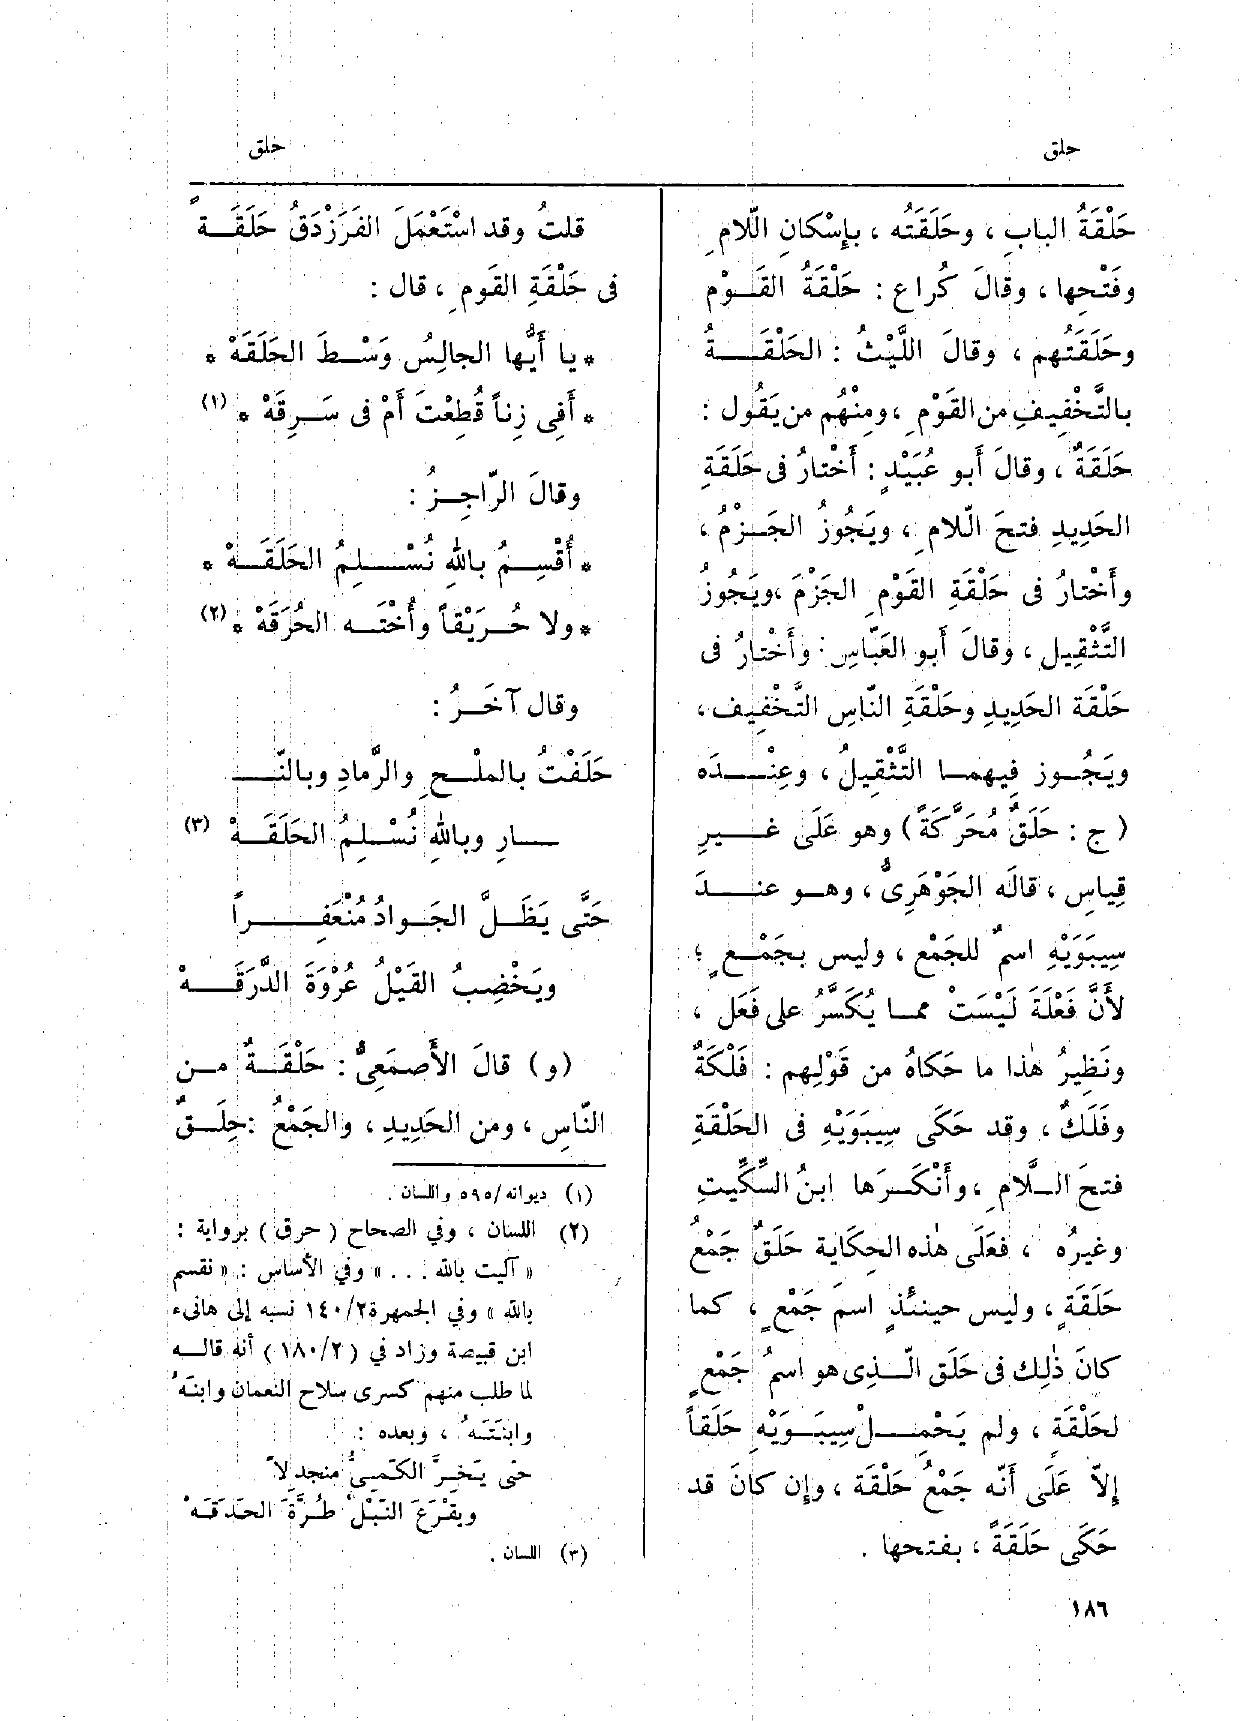 حلق
حلق
حَلْقَةُ الباب ، وحَلَقَتُه ، بإِسْكانِ اللّامِ
وفَتْحِها ، وقالَ كُراع : حَلْقَةُ القَــوْمِ
وحَلَقَتُهم ، وقالَ اللَّيْثُ : الحَلْقَــــةُ
بالتَّخْفِيفِ من القَوْمِ ، ومِنْهُم من يَقُول :
حَلَقَةٌ ، وقالَ أَبو عُبَيْدٍ : أَخْتارُ فى حَلَقَةِ
الحَدِيدِ فتحَ الّلامِ ، ويَجُوزُ الجَــزْمُ ،
وأَخْتارُ فى حَلْقَةِ القَوْمِ الجَزْمَ ، ويَجُوزُ
التَّثْقِيل ، وقالَ أَبو العَبّاسِ : وأَخْتارُ فى
حَلْقَة الحَدِيدِ وحَلْقَةِ النّاسِ التَّخْفِيف ،
ويَجُــوز فِيهمــا التَّثْقِيلُ ، وعِنْــــدَه
( ج : حَلَقٌ مُحَرَّكَةً ) وهو عَلَى غَــــيرِ
قِياس ، قالَه الجَوْهَرِىُّ ، وهــو عنــــدَ
سِيبَوَيْهِ اسمٌ للجَمْع ، وليس بجَمْــعٍ ؛
لأَنَّ فَعْلَة لَيْسَتْ ممــا يُكَسَّرُ على فَعَل ،
ونَظِيرُ هٰذا ما حَكاهُ من قَوْلِهم : فَلْكَةٌ
وفَلَكٌ ، وقد حَكَى سِيبَوَيْهِ فى الحَلْقَةِ
فتحَ الــلَّامِ ، وأَنْكَــرَها ابنُ السِّكِّيتِ
وغيرُه ، فعَلَى هٰذه الحِكَاية حَلَقٌ جَمْعُ
حَلَقَةٍ ، وليس حينئذٍ اسمَ جَمْعٍ ، كما
كانَ ذٰلِك فى حَلَق الّــذِى هو اسمُ جَمْعٍ
لحَلْقَةٍ ، ولم يَحْمِــــلْ سِيبَــوَيْهِ حَلَقاً
إِلاّ عَلَى أَنّه جَمْعُ حَلْقَة ، وإِن كانَ قد
حَكَى حَلَقَةً ، بفتحها .
١٨٦
قلتُ وقد اسْتَعْمَلَ الفَرَزْدَقُ حَلَقَــةً
فى حَلْقَةِ القَومِ ، قال :
* يا أَيُّها الجالِسُ وَسْــطَ الحَلَقَهْ *
* أَفِى زِناً قُطِعْتَ أَمْ فى سَــرِقَهْ * (١)
وقالَ الرّاجِــزُ :
* أُقْسِــمُ باللهِ نُسْــــلِمُ الحَلَقَــهْ *
* ولا حُــرَيْقاً وأُخْتَــه الحُرَقَهْ * (٢)
وقال آخَــرُ :
حَلَفْتُ بالملْــحِ والرَّمادِ وبالنّــــ
ــــارِ وباللهِ نُسْــلِمُ الحَلَقَــهْ (٣)
حَتَّى يَظَــلَّ الجَــوادُ مُنْعَفِــــراً
ويَخْضِبُ القَيْلُ عُرْوَةَ الدَّرَقَــهْ
(و) قالَ الأَصمَعِىُّ : حَلْقَــةٌ مــن
النّاسِ ، ومن الحَدِيدِ ، والجَمْعُ : حِلَــقٌ
(١) ديوانه/٥٩٥ واللسان .
(٢) اللسان ، وفي الصحاح ( حرق ) برواية :
« آليت بالله . . . » وفي الأساس : « نقسم
بالله » وفي الجمهرة ١٤٠/٢ نسبه إلى هانىء
ابن قبيصة وزاد في ( ١٨٠/٢ ) أنه قالــه
لما طلب منهم كسرى سلاح النعمان وابنَهُ
وابنَتَــهُ ، وبعده :
حَتى يَخِــرَّ الكَمِىُّ منجدِلاً
ويقْرَعَ النَبْلُ طُرَّةَ الحَدَقَهْ
(٣) اللسان .